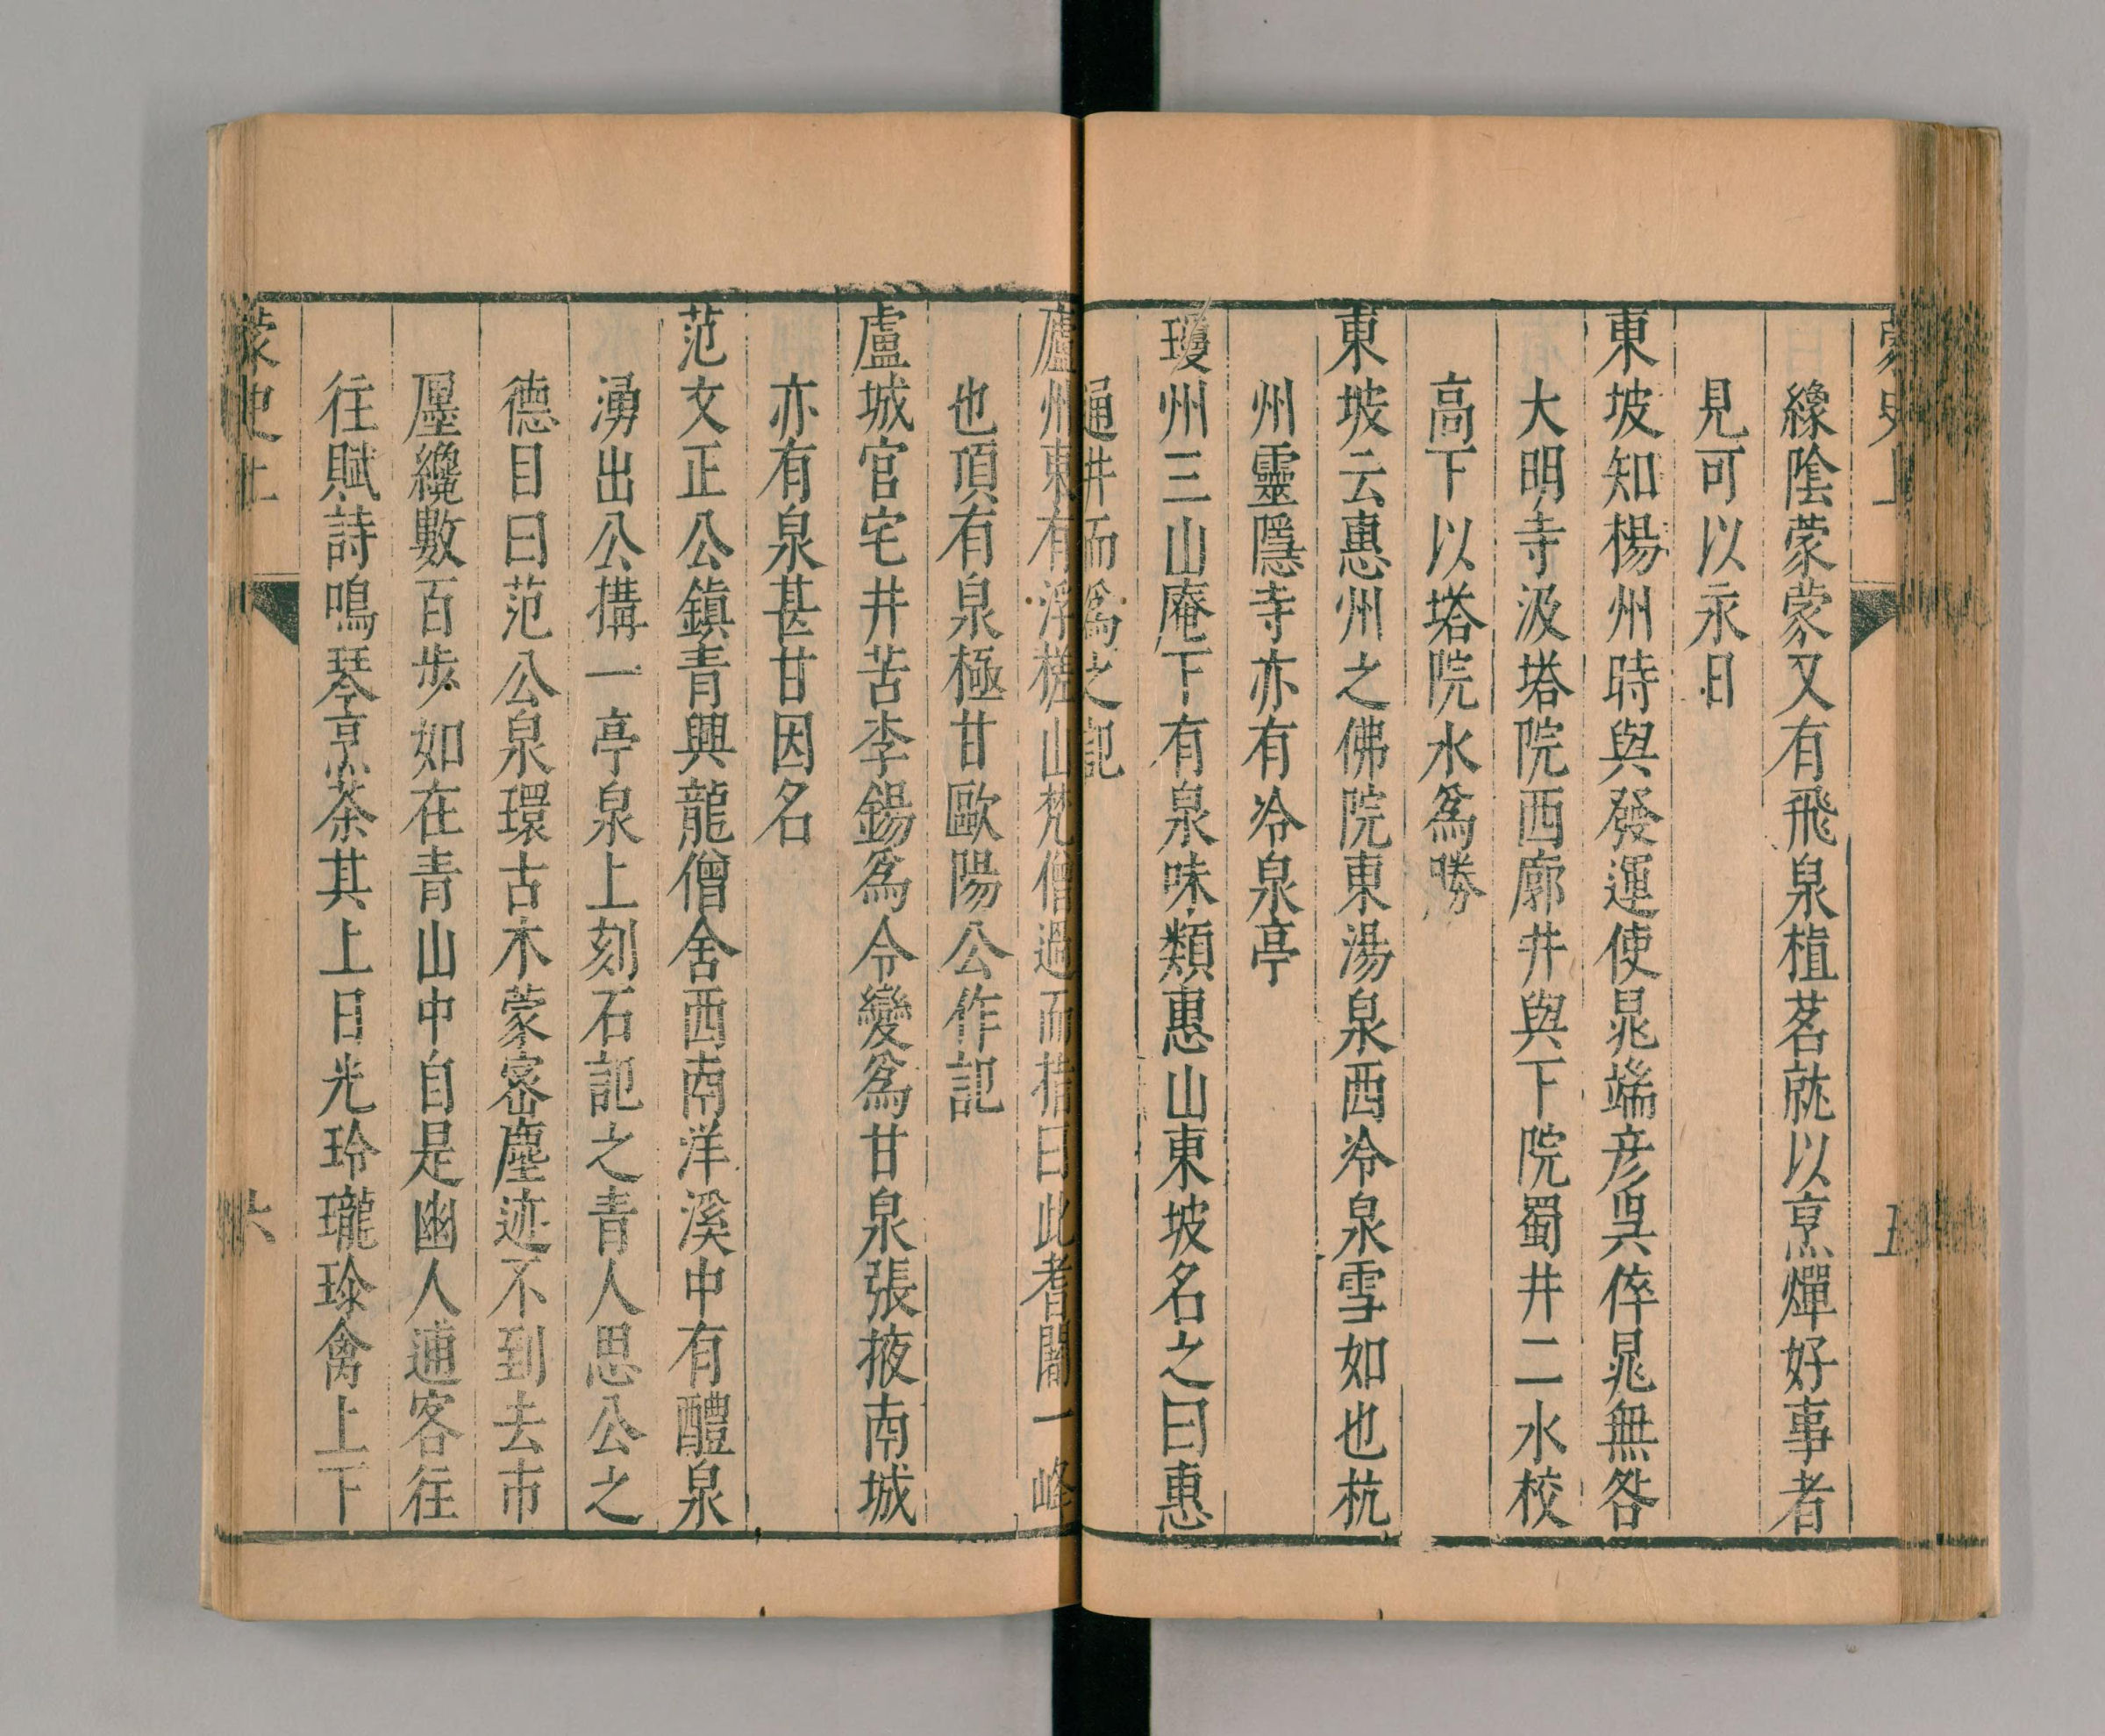 蒙史上
五
緣陰蒙蒙又有飛泉植茗就以烹燀好事者
見可以永日
東坡知楊州時與發運使晁端彥吳倅晁無咎
大明寺汲塔院西廊井與下院蜀井二水校
高下以塔院水爲勝
東坡云惠州之佛院東湯泉西冷泉雪如也杭
州靈隱寺亦有冷泉亭
瓊州三山庵下有泉味類惠山東坡名之曰惠
通井而爲之記
廬州東有浮槎山梵僧過而指曰此耆闍一峰
也頂有泉極甘歐陽公作記
盧城官宅井苦李鍚爲令變爲甘泉張掖南城
亦有泉甚甘因名
范文正公鎮青興龍僧舍西南洋溪中有醴泉
湧出公搆一亭泉上刻石記之青人思公之
德目曰范公泉環古木蒙密塵迹不到去市
廛纔數百步如在青山中自是幽人逋客往
往賦詩鳴琴烹茶其上日光玲瓏珍禽上下
蒙史上
六